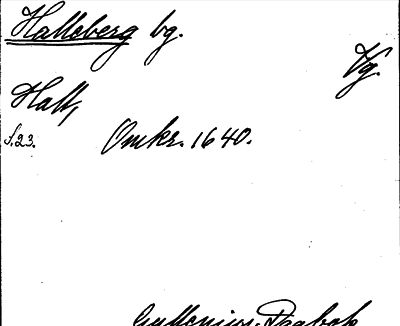 Halleberg bg.
Vg.
Hall,
S.23. Omkr. 1640.
Gyllenius, Dagbok